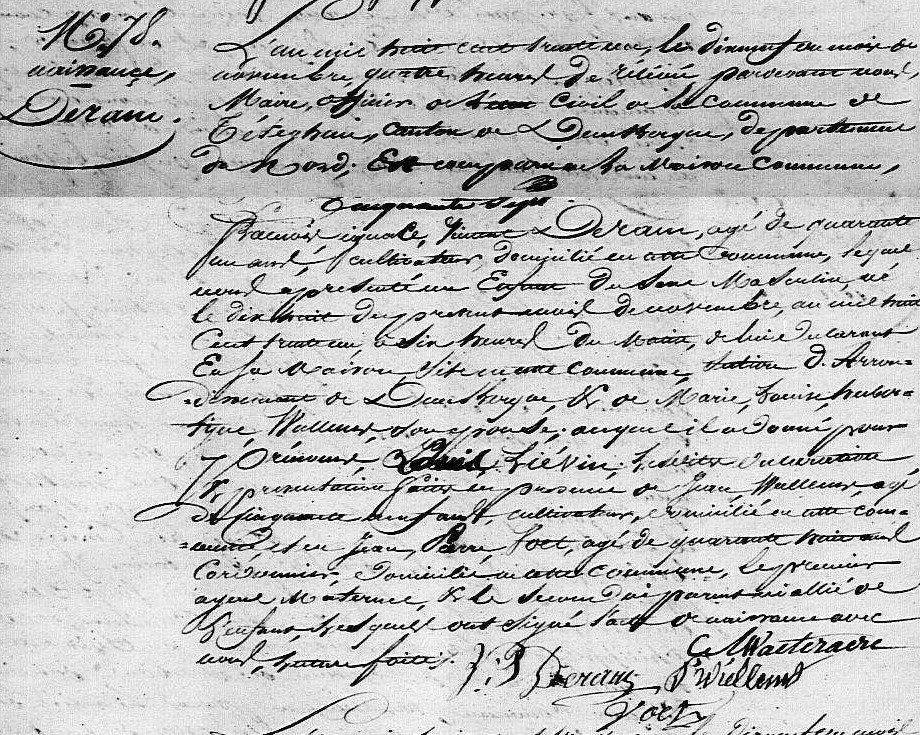 N.° 78.
naissance,
Deram.
L'an mil huit cent trente un, le dix neuf du mois de
novembre, quatre heures de relévée pardevant nous,
Maire, officier de l'état Civil de la Commune de
Téteghem, Canton de Dunkerque, département
du Nord; Est comparu a la Maison Commune,
Cinquante Sept
François ignace, Deram, agé de quarante
un ans, cultivateur, domicilié en cette Commune, lequel
nous a présenté un Enfant du Sexe Masculin, né
le dix huit du présent mois de novembre, an mil huit
Cent trente un, à six heures du Matin, de lui Déclarant
En sa Maison, Sise en cette Commune, d'Arron-
=dissement de Dunkerque, & de Marie, Louise, huber-
tine, Wullems, Son epouse; auquel il a donné pour
Prénoms, Liévin; Lesdites déclaration
& présentation faites en présence de Jean, Wullems agé
de cinquante neuf ans, cultivateur, domicilié en cette com-
=mune et en Jean, Pierre, agé de quarante huit ans
Cordonnier, domicilié en cette commune, le premier
ayeul Maternel, & le Second ni parent ni allié de
l'enfant, Lesquels ont signé l'acte de naissance avec
nous, lecture faite.
Deram